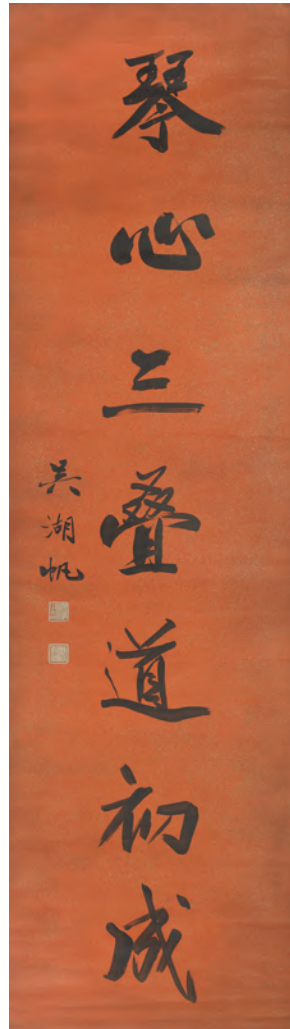 琴心三叠道初成
吴湖帆